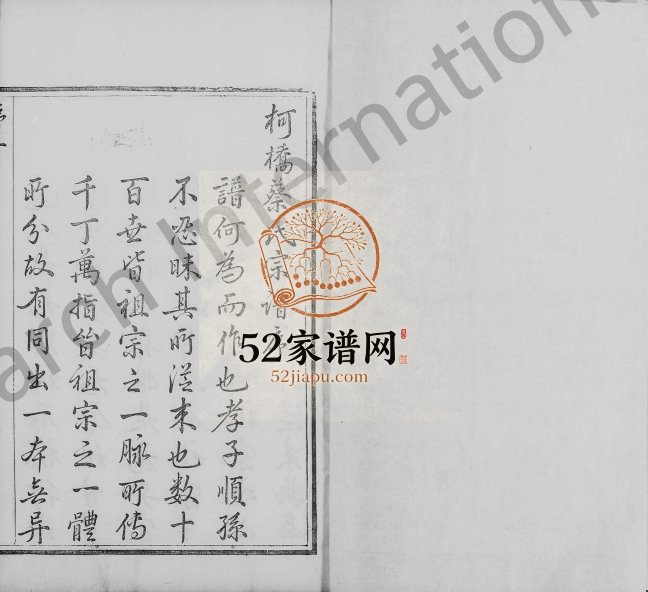 柯橋蔡氏宗譜序
譜何為而作也孝子順孫
不忍昧其所從来也数十
百世皆祖宗之一脉所傳
千丁萬指皆祖宗之一體
所分故有同出一本無异
52家谱网
52jiapu.com
arch International